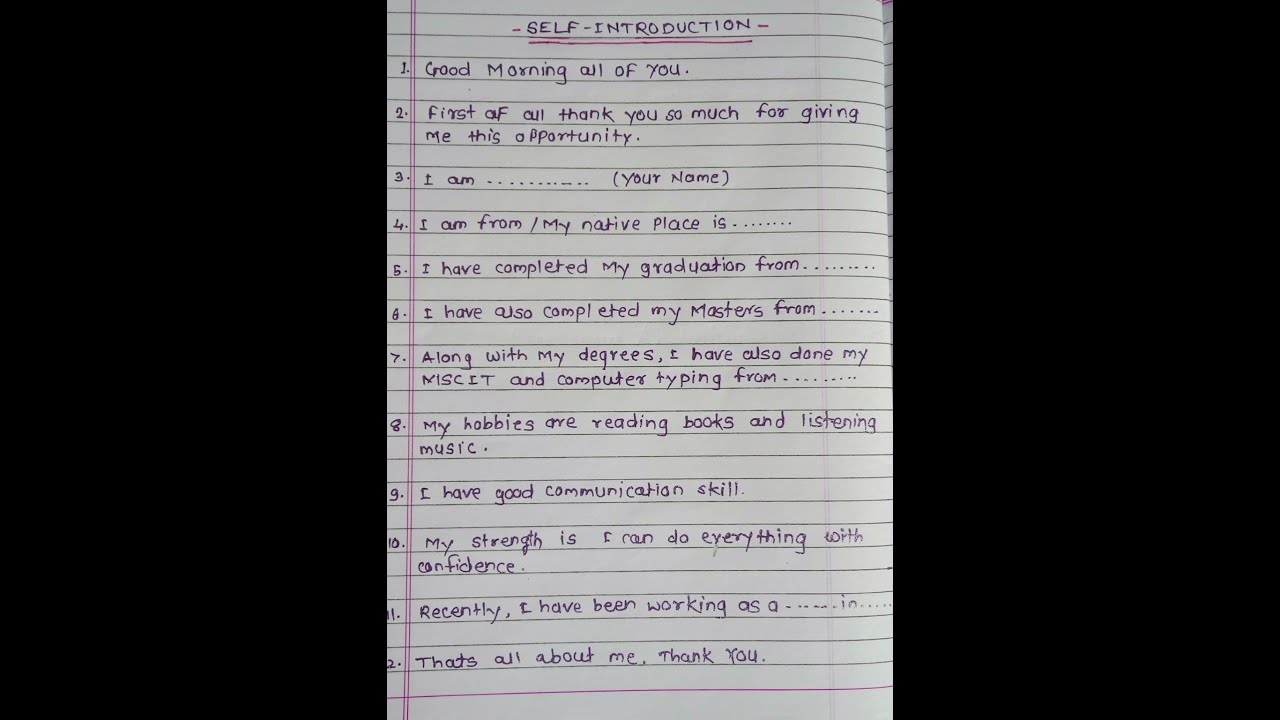 - SELF-INTRODUCTION -
1. Good Morning all of you.
2. First of all thank you so much for giving
me this opportunity.
3. I am ............ (Your Name)
4. I am from / My native place is ........
5. I have completed my graduation from .........
6. I have also completed my Masters from .......
7. Along with my degrees, I have also done my
MSCIT and computer typing from .........
8. My hobbies are reading books and listening
music.
9. I have good communication skill.
10. My strength is I can do everything with
confidence.
11. Recently, I have been working as a ...... in .....
2. Thats all about me. Thank You.